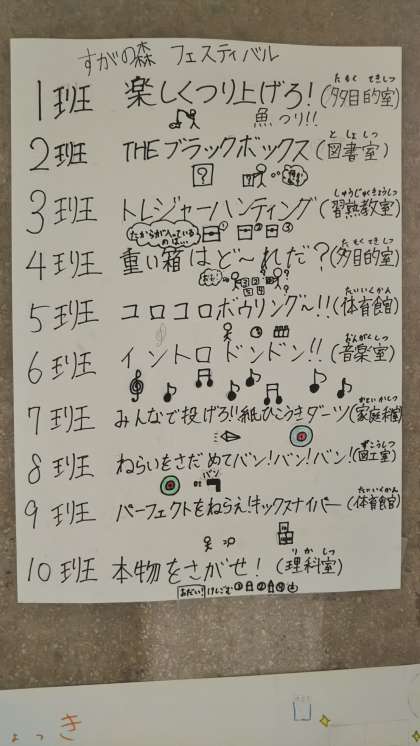 すがの森 フェスティバル
1班 楽しくつり上げろ!(多目的室)
たもくてきしつ
魚つり!!
2班 THEブラックボックス(図書室)
としょしつ
?
3班 トレジャーハンティング(習熟教室)
しゅうじゅくきょうしつ
たからが入っているのは…
① ② ③
4班 重い箱はど〜れだ?(多目的室)
たもくてきしつ
5班 コロコロボウリング〜!!(体育館)
たいいくかん
6班 イントロドンドン!!(音楽室)
おんがくしつ
7班 みんなで投げろ!!紙ひこうきダーツ(家庭科室)
かていかしつ
8班 ねらいをさだめてバン!バン!バン!(図工室)
ずこうしつ
バン
9班 パーフェクトをねらえ!キックスナイパー(体育館)
たいいくかん
10班 本物をさがせ!(理科室)
りかしつ
おだい! けしごむ ① ② ③
ょっき